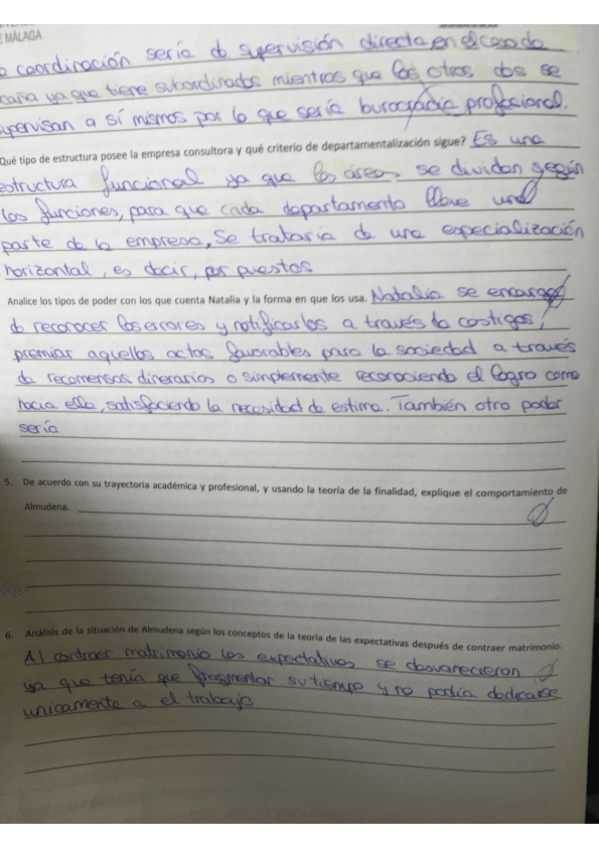 E MÁLAGA
coordinación sería de supervisión directa en el caso de
ya que tiene subordinados mientras que los otros dos se
supervisan a sí mismos por lo que sería burocracia profesional.
Qué tipo de estructura posee la empresa consultora y qué criterio de departamentalización sigue? Es una
estructura funcional ya que las áreas se dividen según
las funciones, para que cada departamento lleve una
parte de la empresa, Se trataría de una especialización
horizontal, es decir, por puestos
Analice los tipos de poder con los que cuenta Natalia y la forma en que los usa. Natalia se encarga
de reconocer los errores y notificarlos a través de castigos,
premiar aquellos actos favorables para la sociedad a través
de recomensas dinerarias o simplemente reconociendo el logro como
hacía ella, satisfaciendo la necesidad de estima. También otro poder
sería
5. De acuerdo con su trayectoria académica y profesional, y usando la teoría de la finalidad, explique el comportamiento de
Almudena.
6. Análisis de la situación de Almudena según los conceptos de la teoría de las expectativas después de contraer matrimonio.
Al contraer matrimonio las expectativas se desvanecieron
ya que tenía que fragmentar su tiempo y no podía dedicarse
unicamente a el trabajo